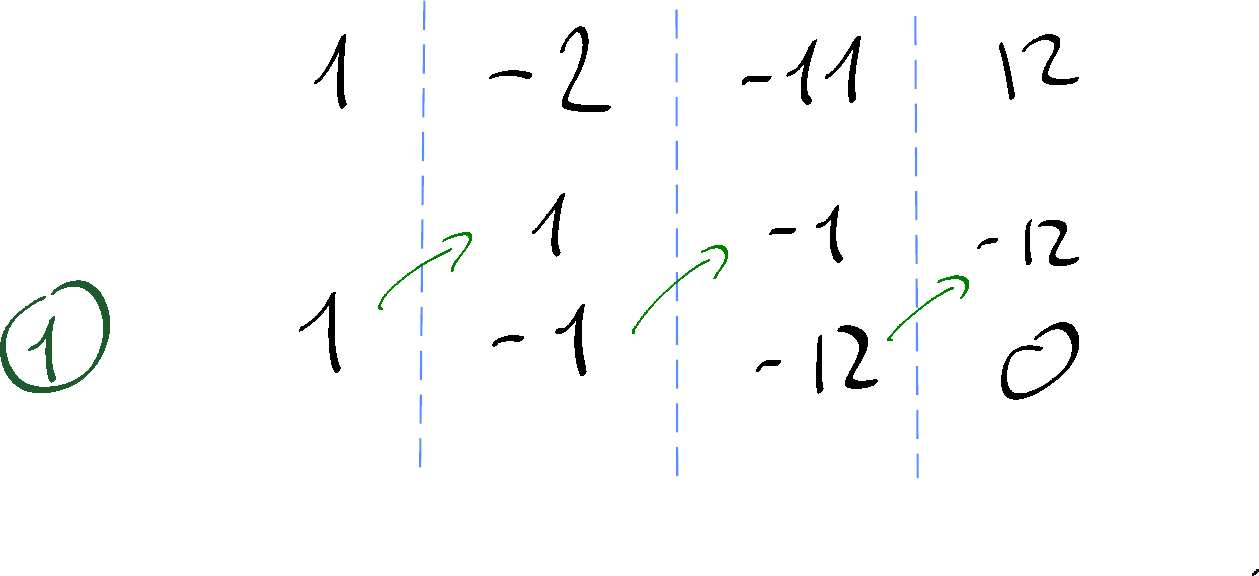 1 -2 -11 12
1 -1 -12
1 1 -1 -12 0